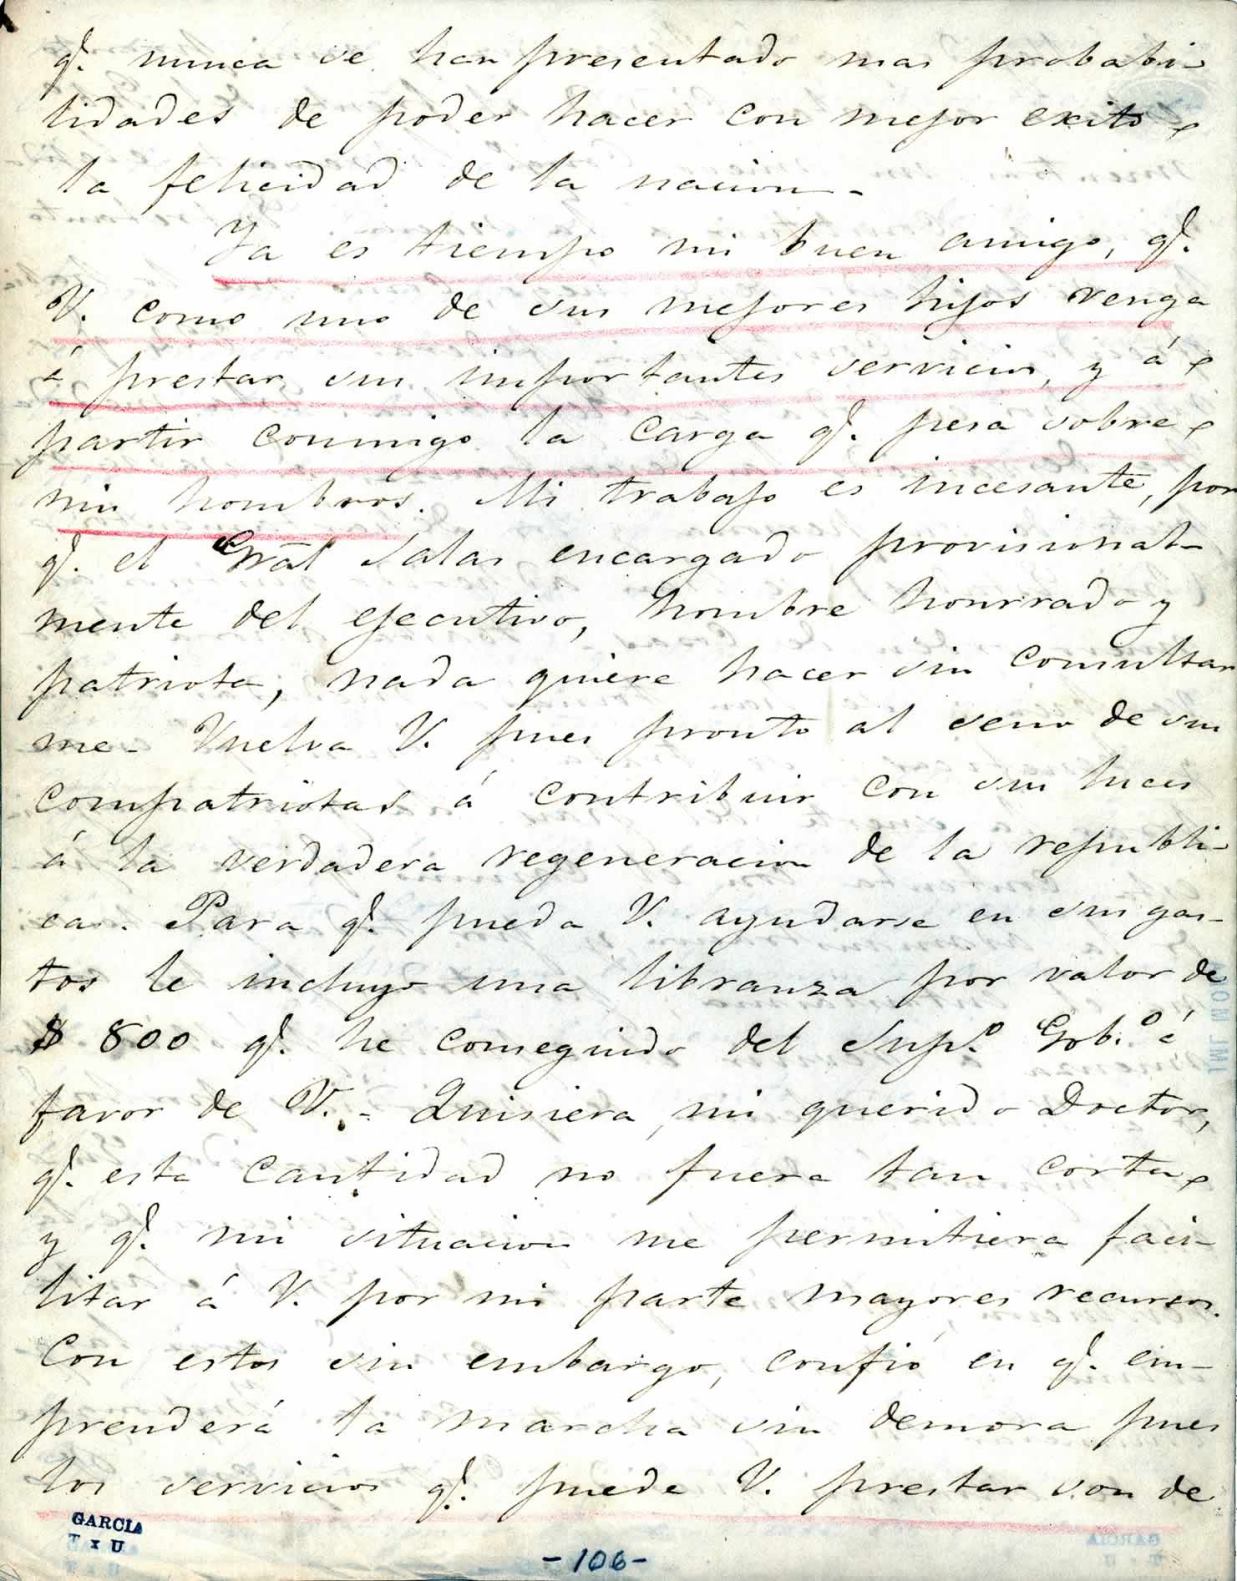 q.e nunca se han presentado mas probabi-
lidades de poder hacer con mejor exito
la felicidad de la nacion-
Ya es tiempo mi buen amigo, q.e
V. como uno de sus mejores hijos venga
á prestar sus importantes servicios, y á
partir conmigo la carga q.e pesa sobre
mis hombros. Mi trabajo es incesante, por
q.e el Gral Salas encargado provisional-
mente del ejecutivo, hombre honrrado y
patriota, nada quiere hacer sin consultar
me- Vuelva V. pues pronto al seno de sus
compatriotas á contribuir con sus luces
á la verdadera regeneracion de la republi-
ca. Para q.e pueda V. ayudarse en sus gas-
tos le incluyo una libranza por valor de
$ 800 q.e he conseguido del Sup.o Gob.o á
favor de V. - Quisiera, mi querido Doctor,
q.e esta cantidad no fuera tan corta
y q.e mi situacion me permitiera faci-
litar á V. por mi parte mayores recursos.
Con estos sin embargo, confió en q.e em-
prenderá la marcha sin demora pues
los servicios q.e puede V. prestar son de
GARCIA
T x U
-106-